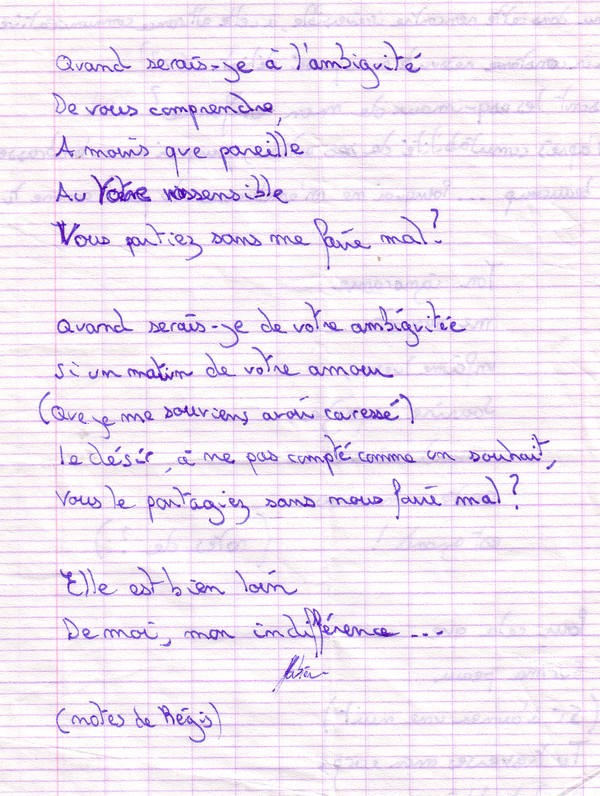 Quand serais-je à l'ambiguité
De vous comprendre,
A moins que pareille
Au Votre insensible
Vous partiez sans me faire mal?
Quand serais-je de votre ambiguitée
si un matin de votre amour
(Que je me souviens avoir caressé)
le désir, à ne pas compté comme un souhait,
Vous le partagiez sans nous faire mal?
Elle est bien loin
De moi, mon indifférence...
(notes de Régis)